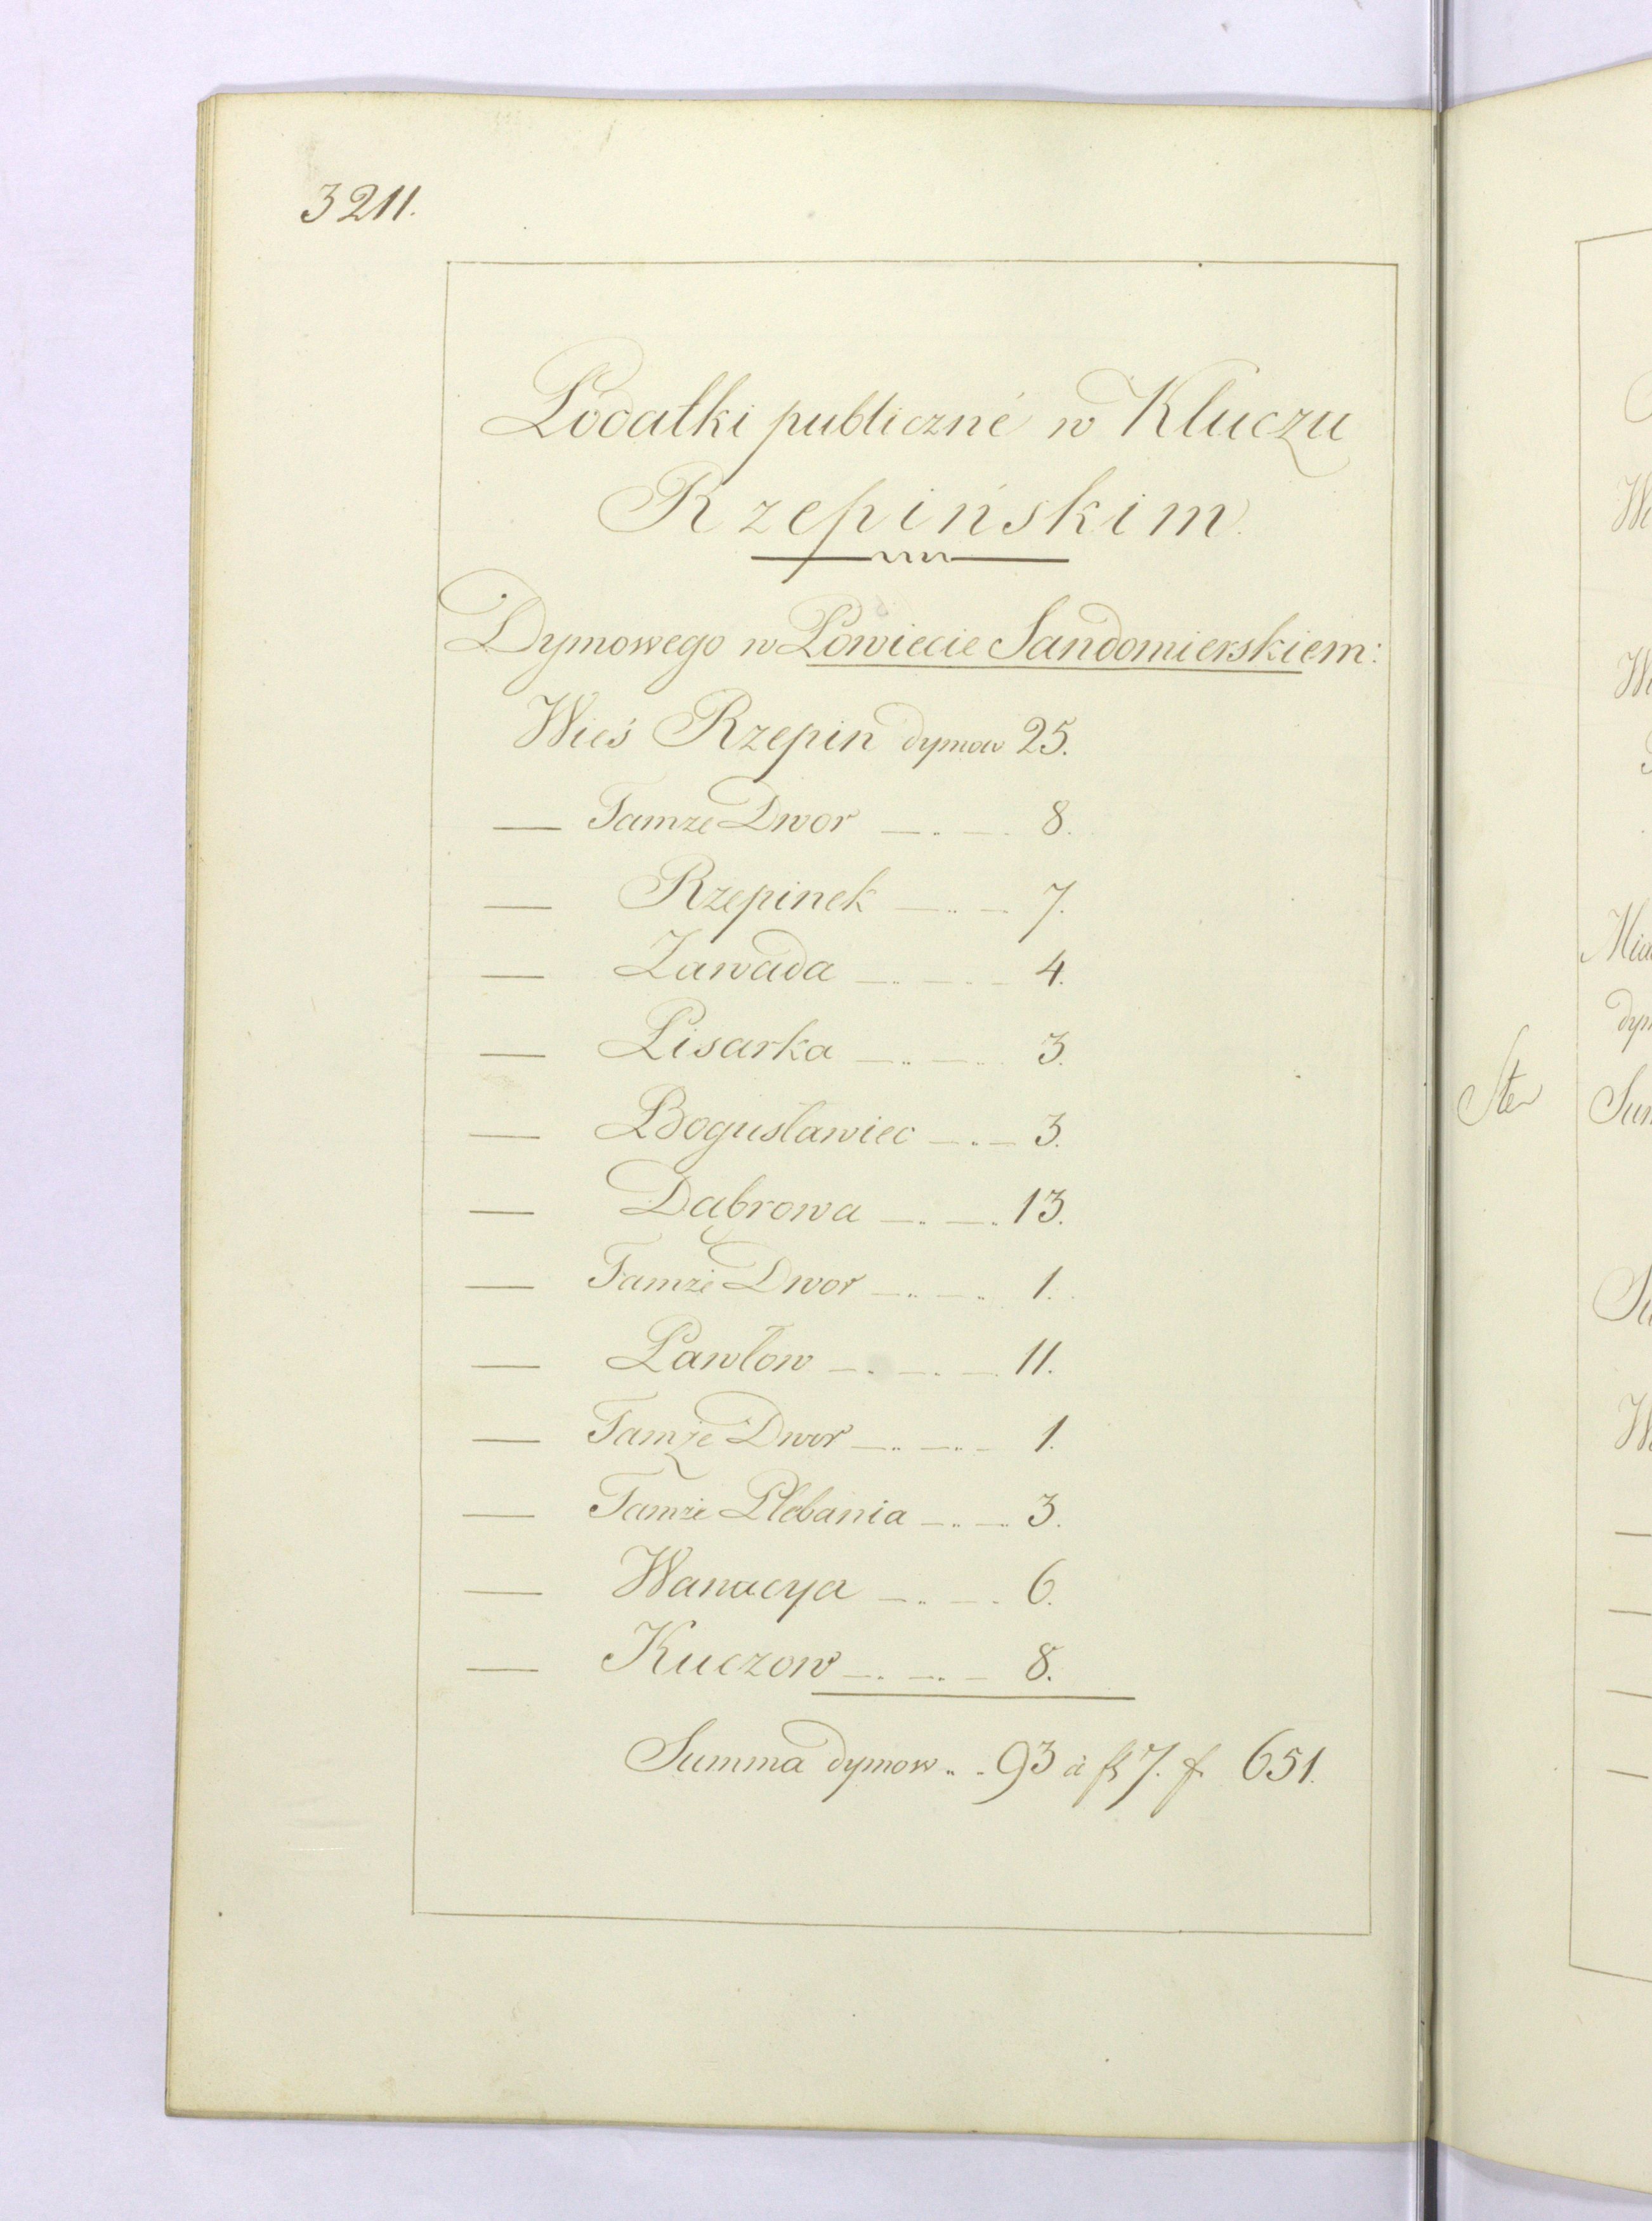 3211.
Podatki publiczné w Kluczu
Rzepińskim
Dymowego w Powiecie Sandomierskiem:
Wieś Rzepin dymow 25.
— Tamże Dwor —.—. 8.
— Rzepinek —..— 7.
— Zawada —..—.— 4.
— Pisarka —..—.. 3.
— Bogusławiec —.— 3.
— Dąbrowa —.—. 13.
— Tamże Dwor —..—.. 1.
— Pawłow —.—.— 11.
— Tamże Dwor —..—..— 1.
— Tamże Plebania —..—.. 3.
— Wanacya —..—. 6.
— Kuczow —.—.— 8.
Summa dymow .. 93 à fl 7. f. 651.
Ste